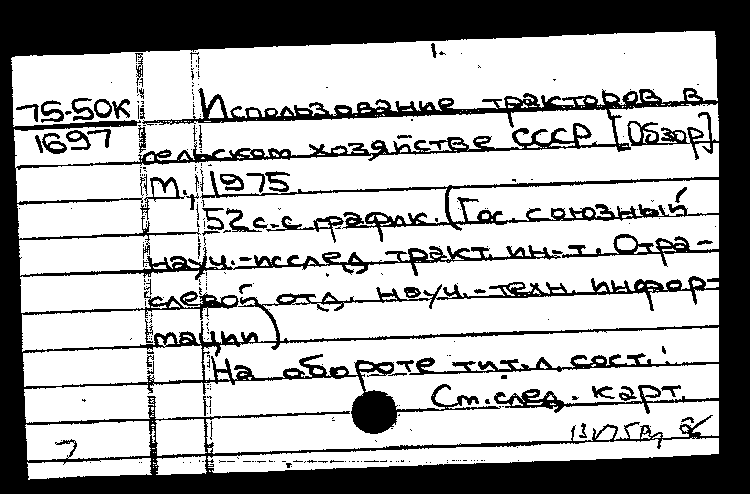 1.
75-50К Использование тракторов в
1697 сельском хозяйстве СССР. [Обзор]
М., 1975.
52 с. с график. (Гос. союзный
науч.-исслед. тракт. ин-т. Отра-
слевой отд. науч.-техн. инфор-
мации).
На обороте тит. л. сост.:
См. след. карт.
7